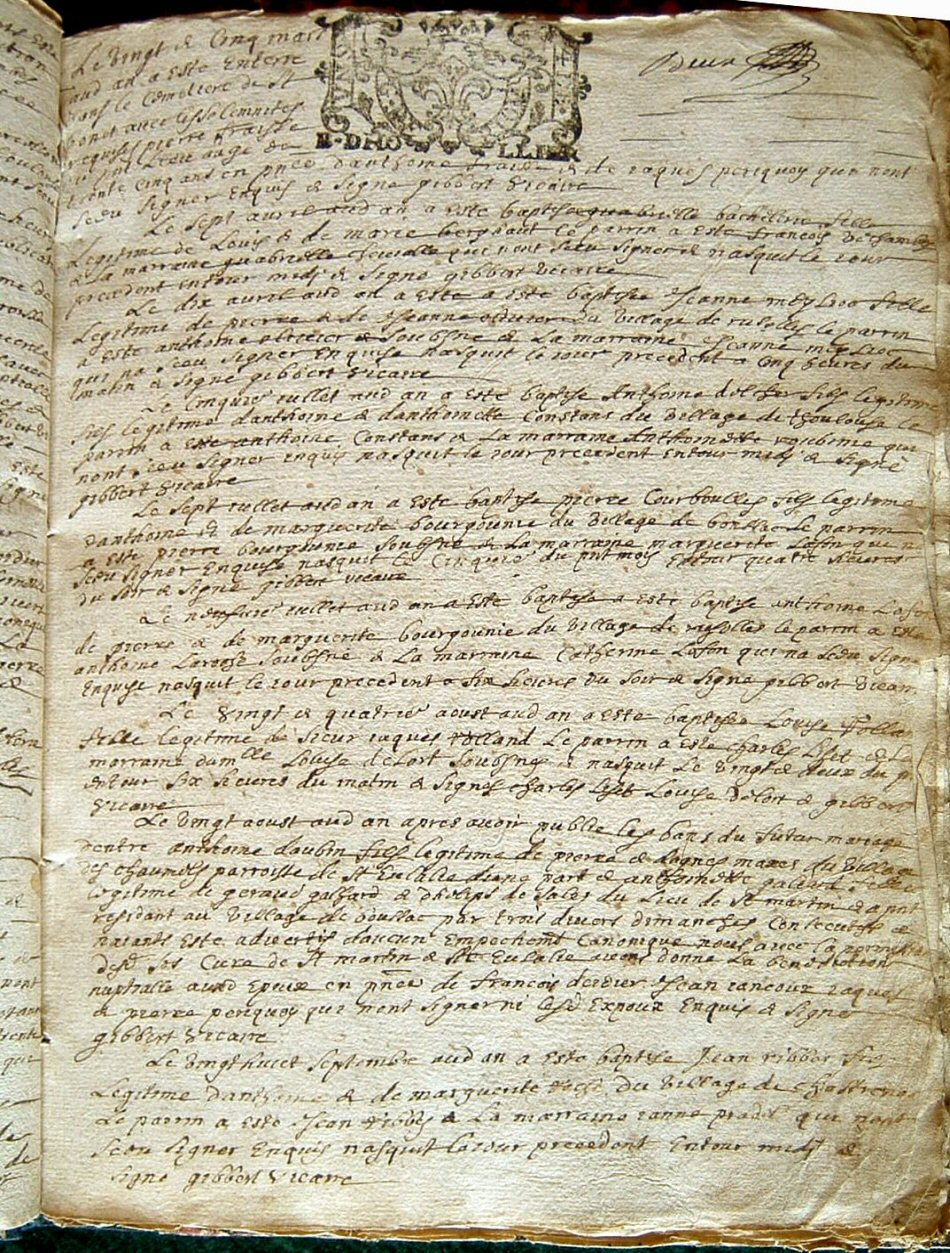 Le vingt & Cinq mars
aud an a este Enterre
dans le Cemetiere de st
bonet avec les solemnites
requises pierre fraisse
du pnt Lieu aage de
trente Cinq ans en pñce danthoine & de raques periquoy qui nont
sceu signer Enquis & signe gibbert vicaire
II-DHO LLIER
Le sept avril aud an a este baptisee guabrielle bachelerie fille
Legitime de Louis & de marie bergnaut Le parrin a este françois dechambe
& La marraine guabrielle qui nont sceu signer & nasquit le iour
precedent entour midy & signe gibbert vicaire
Le dix avril aud an a este a este baptisee Jeanne meylioc fille
Legitime de pierre & de Jeanne du village de rusolles le parrin
a este anthoine soubsne & La marraine Jeanne meylioc
qui na sceu signer Enquise nasquit le iour precedent a Cinq heures du
matin & signe gibbert vicaire
Le Cinquie iullet aud an a este baptise Anthoine fils legitime
fils legitime danthoine & danthoinette Constans du village de thoulouse le
parrin a este anthoine Constans & La marraine Anthoinette qui
nont sceu signer enquis nasquit le iour precedent Entour midy & signe
gibbert vicaire
Le sept iullet aud an a este baptise pierre Courboulles fils legitime
danthoine & de marguerite bourgounie du village de Le parrin
a este pierre bourgounie soubsne & La marraine marguerite Lafon qui n
sceu signer Enquise nasquit le Cinquie du pnt mois Entour quatre heures
du soir & signe gibbert vicaire
Le neufvie iullet aud an a este baptise a este baptise anthoine Lafon
de pierre & de marguerite bourgounie du village de rusolles le parrin a este
anthoine Laroze soubsne & La marraine Catherine Lafon qui na sceu signe
Enquise nasquit le iour precedent a six heures du soir & signe gibbert vicair
Le vingt & quatrie aoust aud an a este baptisee Louise
fille legitime de sieur iaques Le parrin a este charles Liset & La
marraine damlle Louise delort soubsnes & nasquit Le vingt & deux du p
entour six heures du matin & signes charles Liset Louise delort & gibbert
vicaire
Le vingt aoust aud an apres avoir publie les bans du futur mariage
dentre anthoine daubin fils legitime de pierre & dagnes mazes du village
des chaumels parroisse de st Eulalie dune part & anthoinette galiard fille
legitime de geraud galiard & dhelips de salas du Lieu de st martin & a pnt
residant au village de boussac par trois divers dimanches Consecutifs &
nayants este advertis daucun Empechemt Canonique nous avec La permission
des srs Cure de st martin & ste Eulalie avons donne La benediction
nuptialle ausd Epoux en pñce de françois Jean iaques
& pierre periquoy qui nont signer ni lesd Expoux Enquis & signe
gibbert vicaire
Le vingthuict septembre aud an a este baptise Jean ribber fils
Legitime danthoine & de marguerite du village de
Le parrin a este Jean & La marraine ianne qui nont
sceu signer Enquis nasquit le iour precedent Entour midy &
signe gibbert vicaire